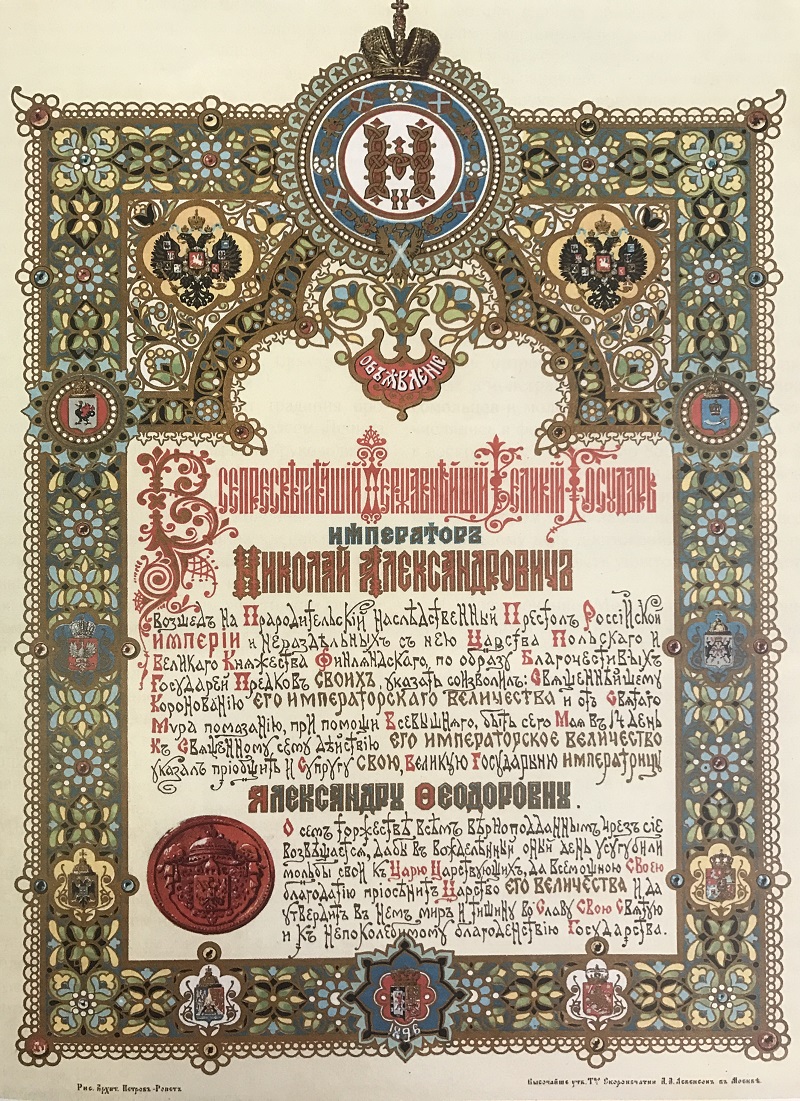 Н II
ОБЪѦВЛЕНІЕ
Всепресвѣтлѣйшій Державнѣйшій Великій Государь
ИМПЕРАТОРЪ
Николай Александровичъ
Возшедъ на Прародительскій наслѣдственный Престолъ Россійской
Имперіи и нераздѣльныхъ съ нею Царства Польскаго и
Великаго Княжества Финляндскаго, по образу Благочестивыхъ
Государей Предковъ своихъ, указать соизволилъ: Священнѣйшему
Коронованію ЕГО ИМПЕРАТОРСКАГО ВЕЛИЧЕСТВА и отъ Святаго
Мѵра помазанію, при помощи Всевышняго, быть сего Мая въ 14 день
Къ Священному сему дѣйствію ЕГО ИМПЕРАТОРСКОЕ ВЕЛИЧЕСТВО
указалъ пріобщить и Супругу СВОЮ, Великую Государыню ИМПЕРАТРИЦУ
Александру Ѳеодоровну.
О семъ торжествѣ всѣмъ вѣрноподданнымъ чрезъ сіе
возвѣщается, дабы въ вожделѣнный оный день усугубили
мольбы свои къ Царю Царствующихъ, да всемощною Своею
благодатію пріосѣнитъ Царство ЕГО ВЕЛИЧЕСТВА и да
утвердитъ въ немъ миръ и тишину во Славу Свою Святую
и къ непоколебимому благоденствію Государства.
1896
Рис. Архит. Петровъ-Ропетъ
Высочайше утв. Т-во Скоропечатни А. А. Левенсонъ въ Москвѣ.